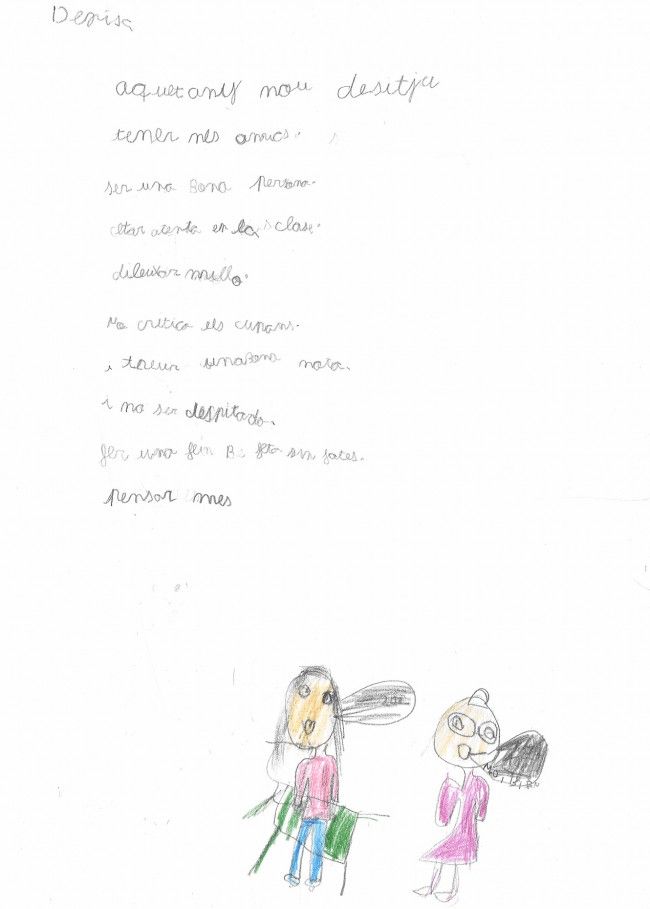 Denisa
aquet any nou desitju
tener mes amics.
ser una Bona persona.
etar atenta en la clase.
dibuixar millo.
No critica els cupans.
i treur una Bona nota.
i no ser despitado.
fer una fein Be feta sin faltes.
pensar mes